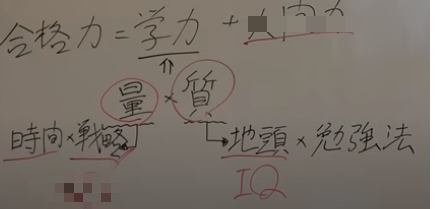 合格力=学力+
⇑
量×質
時間×戦略 地頭×勉強法
IQ